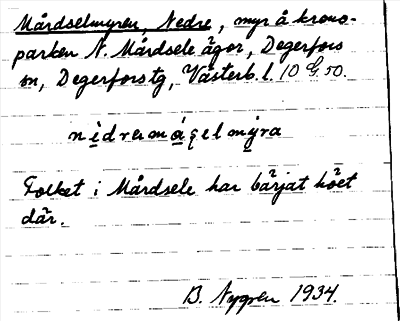 Mårdselmyren, Nedre, myr å krono-
parken N. Mårdsele ägor, Degerfors
sn, Degerfors tg, Västerb. l. 10 G. 50.
Folket i Mårdsele har bärjat höet
där.
B. Nygren 1934.